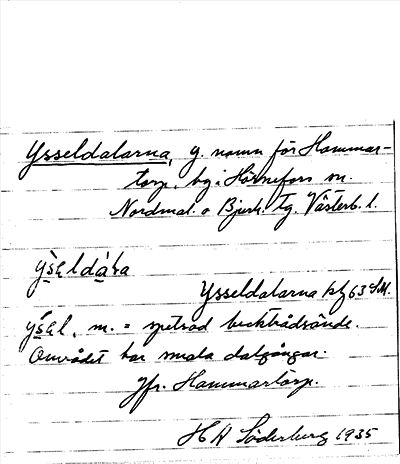 Ysseldalarna, g. namn för Hammar-
torp, by i Hörnefors sn.
Nordmal. o Bjurh. tg. Västerb. l.
ýsəldàra
Ysseldalarna kbl 63 SM.
ýsəl, m. = spetsad becktrådsände.
Området har smala dalgångar.
Jfr. Hammartorp.
H A Söderberg 1935